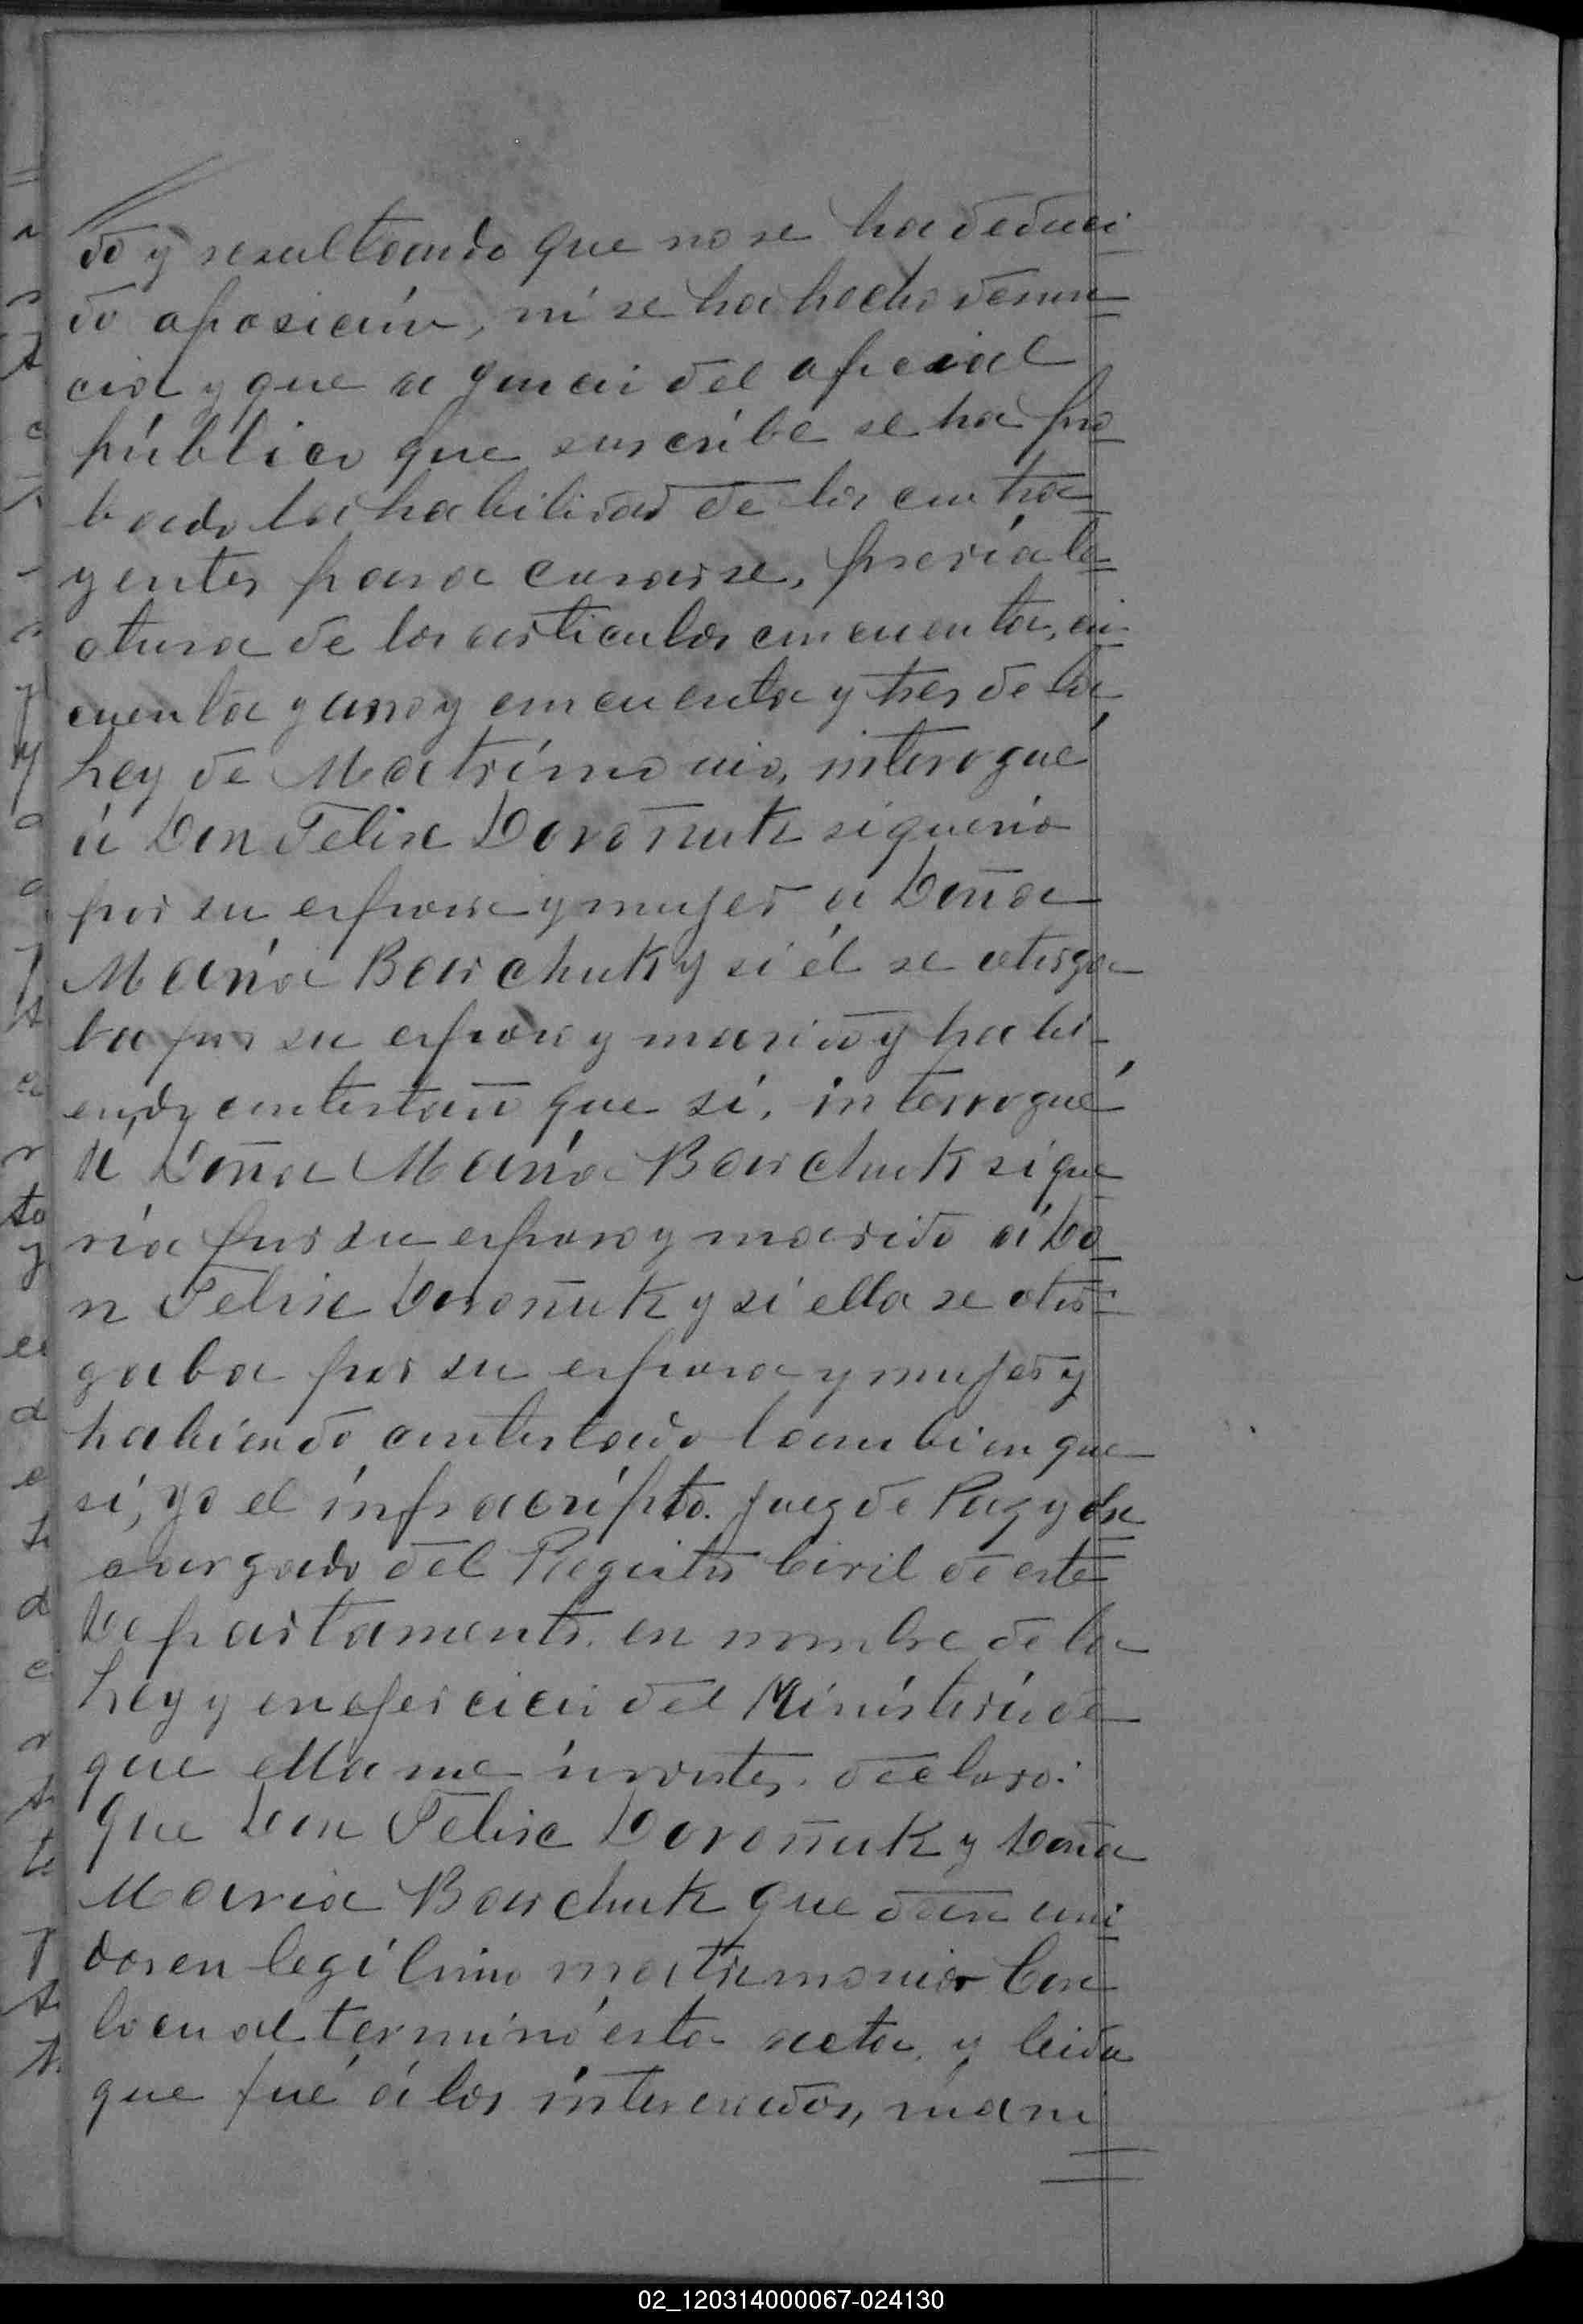 do y resultando que no se ha deduci
do oposición, ni se ha hecho denun
cia y que a juicio del oficial
público que suscribe se ha pro
bado la habilidad de los contra
yentes para casarse, previa le
ctura de los articulos cincuenta, cin
cuenta y uno y cincuenta y tres de la
Ley de Matrimonio, interogué
á Don Felix Doroñuk si queria
por su esposa y mujer á Doña
María Barchuk y si él se otorga
ba por su esposo y marido y habi-
endo contestado que sí, interrogué
á Doña María Barchuk si que
ría por su esposo y marido á Do
n Felix Doroñuk y si ella se otor
gaba por su esposa y mujer y
habiendo contestado tambien que
sí, yo el infracripto. Juez de Paz y En
cargado del Registro Civil de este
Departamento. en nombre de la
Ley y en ejercicio del Ministerio de
que ella me inviste, declaro:
Que Don Felix Doroñuk y Doña
Maria Barchuk quedan uni
dos en legítimo matrimonio Con
lo cual terminó esta acta, y leida
que fué á los interesados, mani
02_120314000067-024130